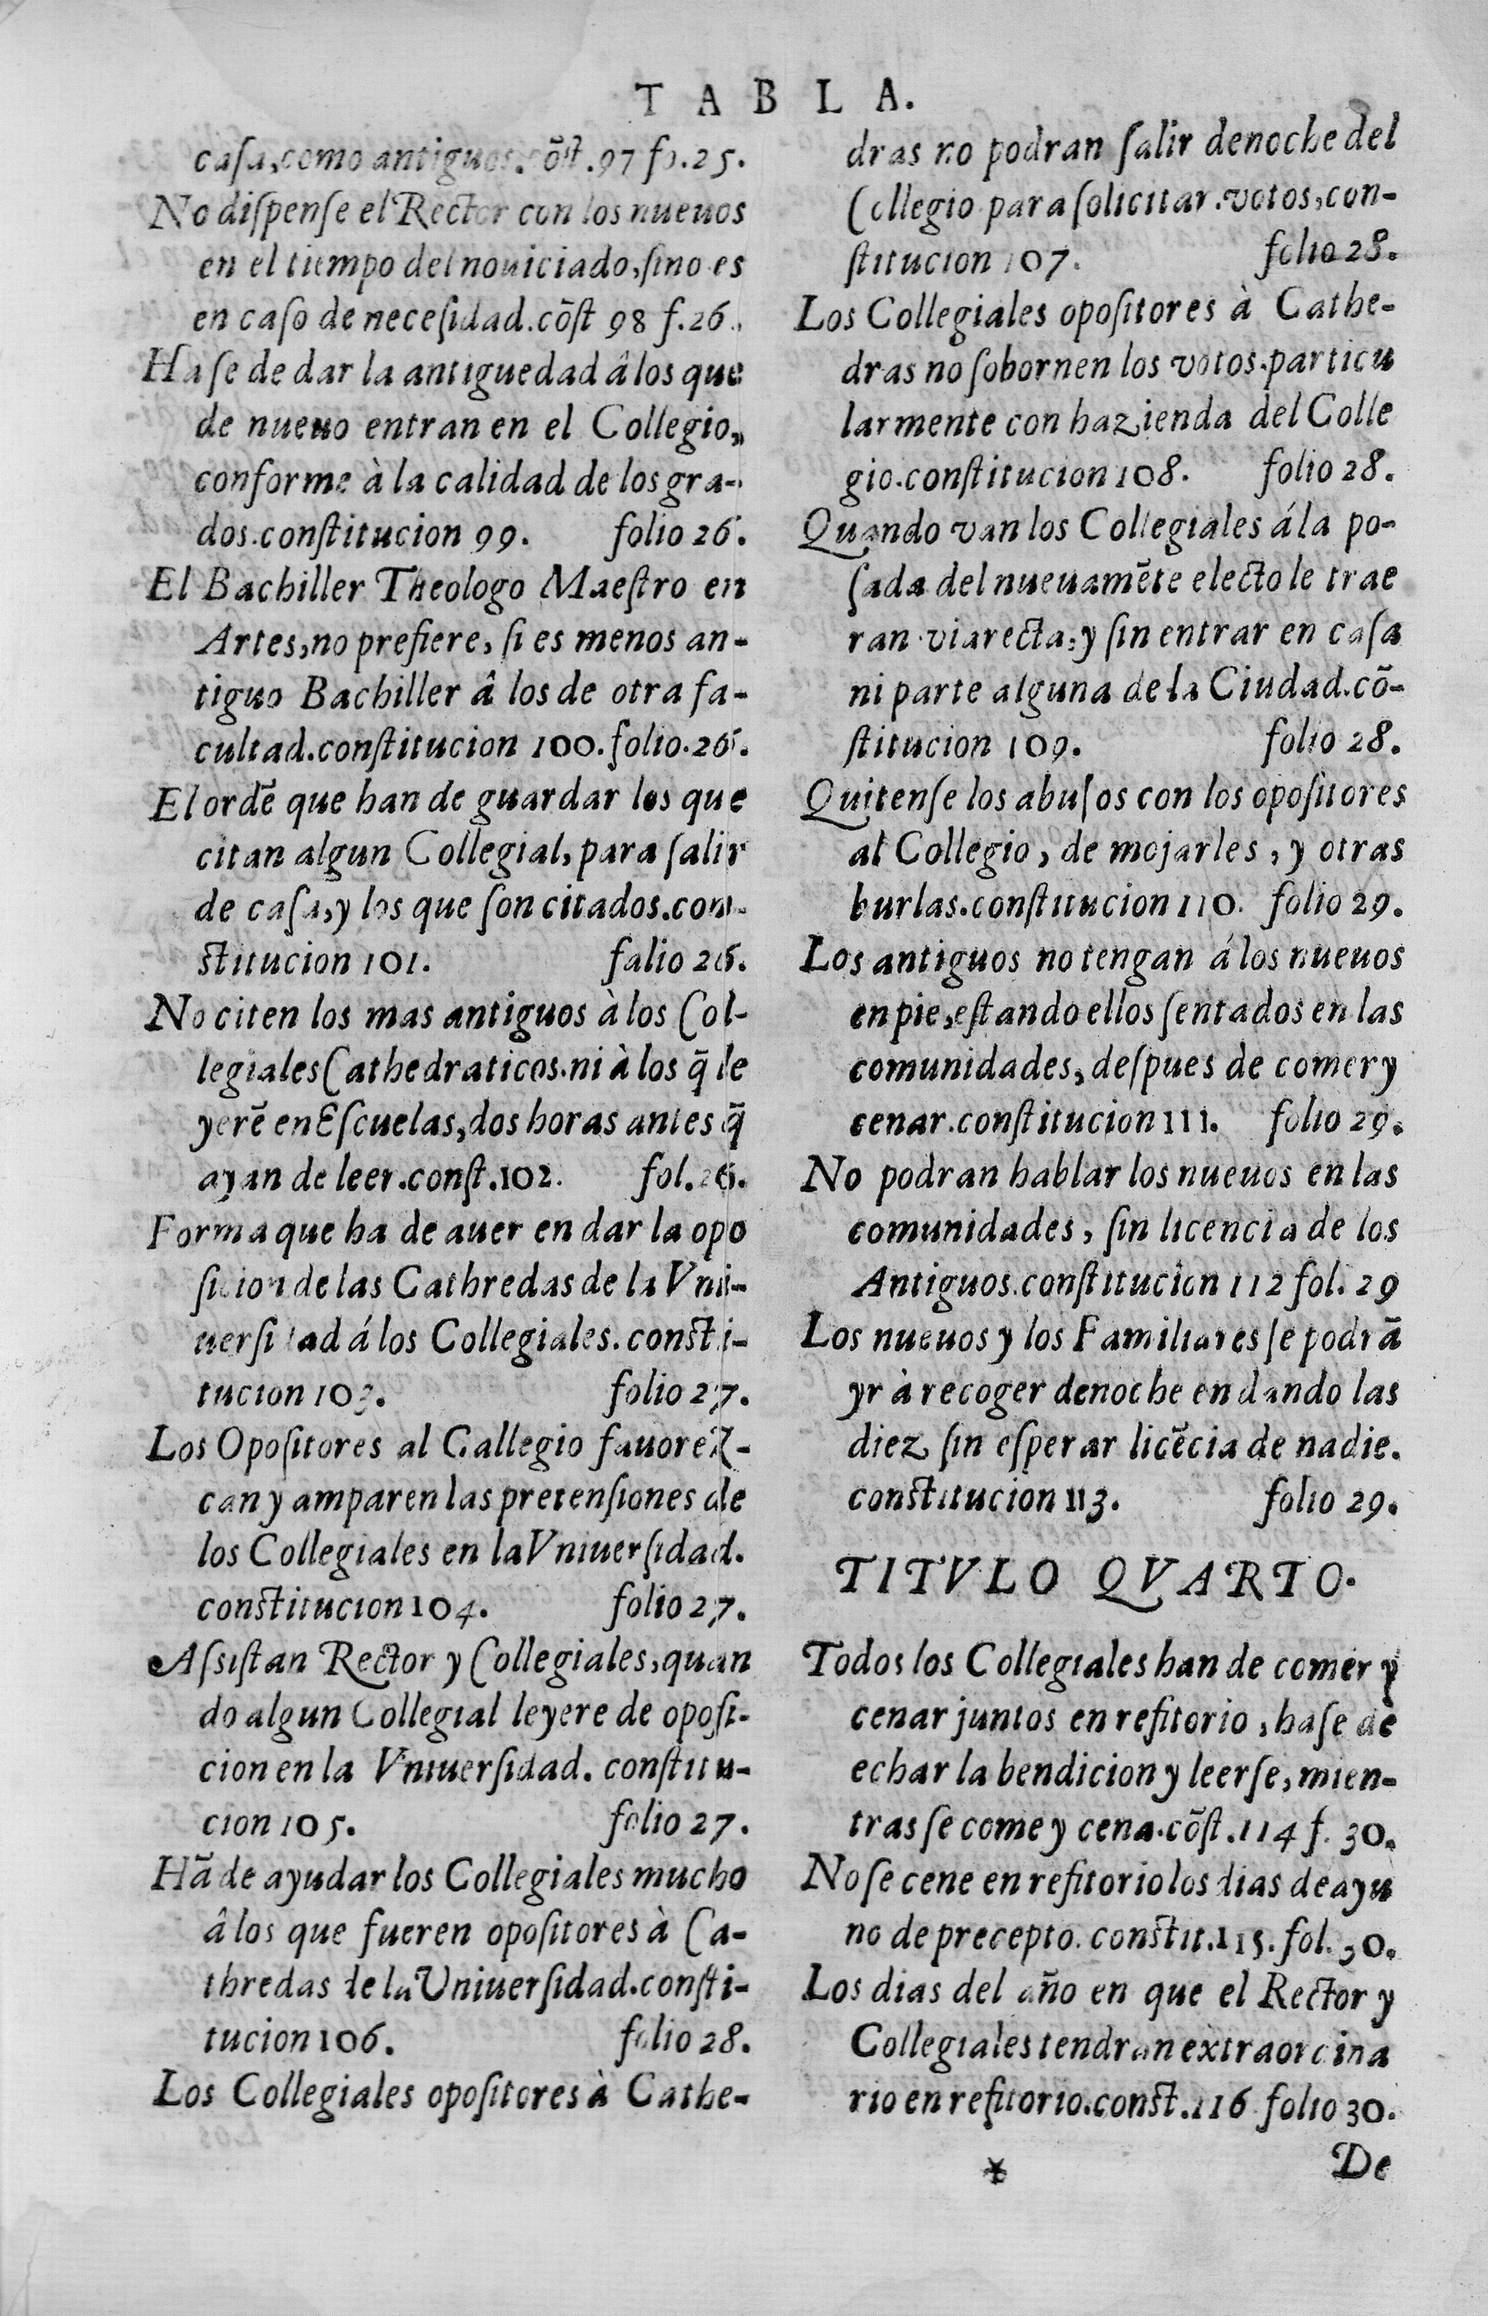 TABLA.
casa, como antiguos. cõst. 97 fo. 25.
No dispense el Rector con los nueuos
en el tiempo del nouiciado, sino es
en caso de necesidad. cõst 98 f. 26.
Ha se de dar la antiguedad â los que
de nueuo entran en el Collegio,
conforme à la calidad de los gra-
dos. constitucion 99. folio 26.
El Bachiller Theologo Maestro en
Artes, no prefiere, si es menos an-
tiguo Bachiller â los de otra fa-
cultad. constitucion 100. folio. 26.
El ordẽ que han de guardar los que
citan algun Collegial, para salir
de casa, y los que son citados. con-
stitucion 101. falio 26.
No citen los mas antiguos à los Col-
legiales Cathedraticos. ni à los q̃ le
yerẽ en Escuelas, dos horas antes q̃
ayan de leer. const. 102. fol. 26.
Forma que ha de auer en dar la opo
sicion de las Cathredas de la Vni-
uersidad á los Collegiales. consti-
tucion 103. folio 27.
Los Opositores al Callegio fauorez-
can y amparen las pretensiones de
los Collegiales en la Vniuersidad.
constitucion 104. folio 27.
Assistan Rector y Collegiales, quan
do algun Collegial leyere de oposi-
cion en la Vniuersidad. constitu-
cion 105. folio 27.
Hã de ayudar los Collegiales mucho
â los que fueren opositores à Ca-
thredas de la Uniuersidad. consti-
tucion 106. folio 28.
Los Collegiales opositores à Cathe-
dras no podran salir denoche del
Collegio para solicitar. votos, con-
stitucion 107. folio 28.
Los Collegiales opositores à Cathe-
dras no sobornen los votos. particu
larmente con hazienda del Colle
gio. constitucion 108. folio 28.
Quando van los Collegiales á la po-
sada del nueuamẽte electo le trae
ran. via recta: y sin entrar en casa
ni parte alguna de la Ciudad. cõ-
stitucion 109. folio 28.
Quitense los abusos con los opositores
al Collegio, de mojarles, y otras
burlas. constitucion 110. folio 29.
Los antiguos no tengan á los nueuos
en pie, estando ellos sentados en las
comunidades, despues de comer y
cenar. constitucion 111. folio 29.
No podran hablar los nueuos en las
comunidades, sin licencia de los
Antiguos. constitucion 112 fol. 29
Los nueuos y los Familiares se podrã
yr à recoger denoche en dando las
diez sin esperar licẽcia de nadie.
constitucion 113. folio 29.
TITVLO QVARTO.
Todos los Collegiales han de comer y
cenar juntos en refitorio, hase de
echar la bendicion y leerse, mien-
tras se come y cena. cõst. 114 f. 30.
No se cene en refitorio los dias de ayu
no de precepto. constit. 115. fol. 30.
Los dias del año en que el Rector y
Collegiales tendran extraordina
rio en refitorio. const. 116 folio 30.
* De